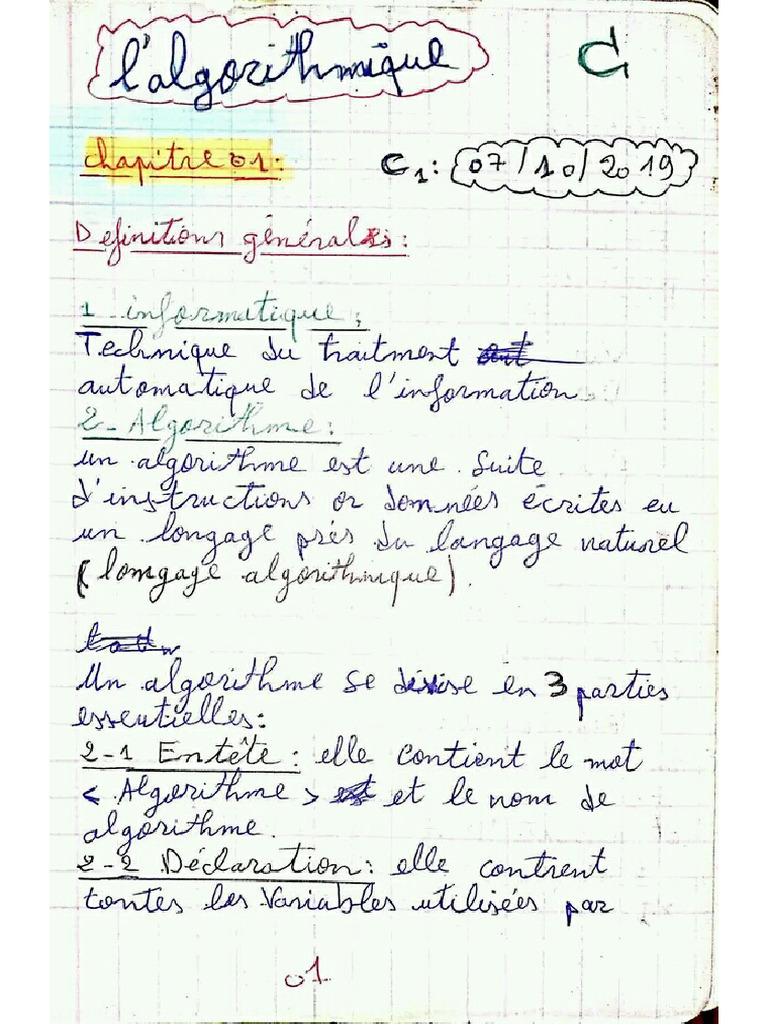 l'algorithmique
C
chapitre 01:
C1: 07/10/2019
Definitions générales:
1 - informatique:
Technique du traitment
automatique de l'information
2- Algorithme:
un algorithme est une suite
d'instructions or données écrites en
un longage prés du langage naturel
(longage algorithmique).
Un algorithme se divise en 3 parties
essentielles:
2-1 Entête: elle contient le mot
< Algorithme > et le nom de
algorithme.
2-2 Déclaration: elle contient
toutes les variables utilisées par
01